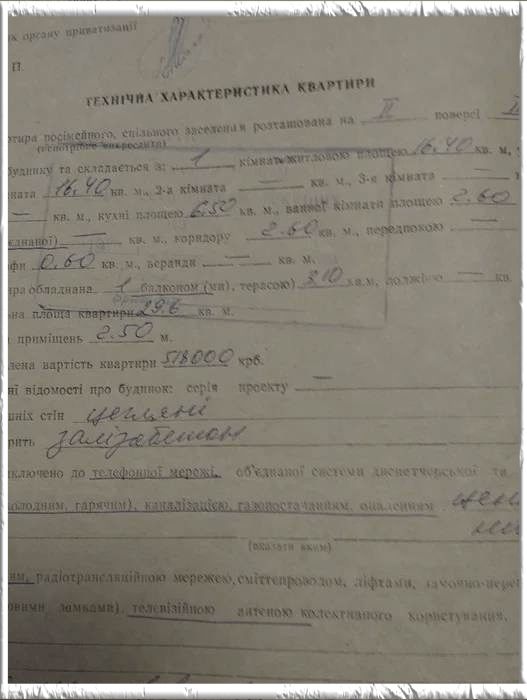 к органу приватизації
П
ТЕХНІЧНА ХАРАКТЕРИСТИКА КВАРТИРИ
ртира посімейного, спільного заселення розташована на II поверсі
(непотрібне викреслити)
будинку та складається з: 1 кімнат житловою площею 16.40 кв. м,
ната 16.40 кв. м., 2-а кімната — кв. м., 3-я кімната —
— кв. м., кухні площею 6.50 кв. м., ванної кімнати площею 2.60
єднаної) — кв. м., коридору 2.60 кв. м., передпокою —
фи 0.60 кв. м., веранди — кв. м.
ра обладнана 1 балконом (ми), терасою) 3.10 кв.м, лоджією — кв.
ьна площа квартири 29.6 кв. м.
приміщень 2.50 м.
лена вартість квартири 518000 крб.
ні відомості про будинок: серія проекту —
шніх стін цегляні
рить залізабетон
ключено до телефонної мережі, об'єднаної системи диспетчерської та
холодним, гарячим), каналізацією, газопостачанням, опаленням
(вказати яким)
им, радіотрансляційною мережею, сміттєпроводом, ліфтами,
овими замками), телевізійною антеною колективного користування,